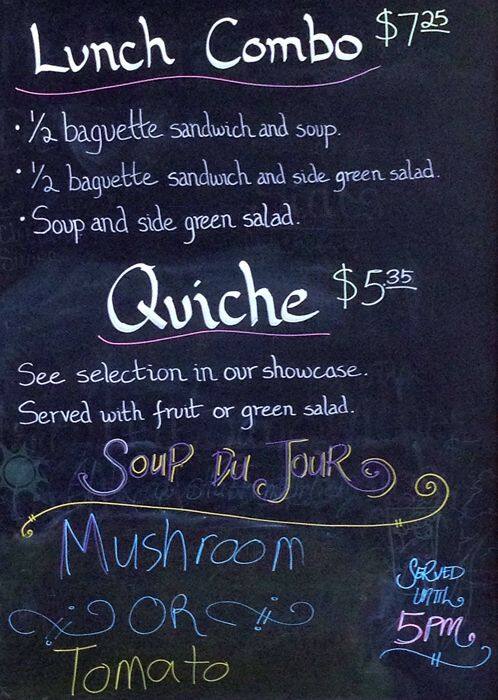 Lunch Combo $7.25
• 1/2 baguette sandwich and soup.
• 1/2 baguette sandwich and side green salad.
• Soup and side green salad.
Quiche $5.35
See selection in our showcase.
Served with fruit or green salad.
Soup Du Jour
Mushroom
OR
Tomato
SERVED
UNTIL
5PM